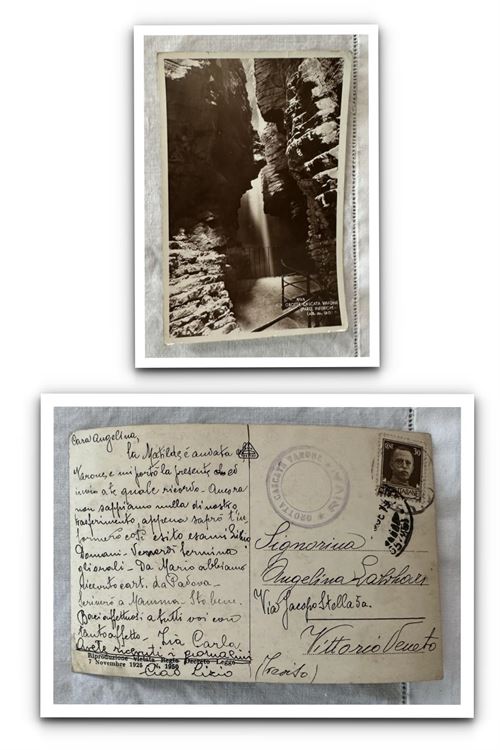 GROTTA CASCATA VARONE
(PARTE INFERIORE)
Cara Angelina,
la Matilde è andata a
Varone, e mi portò la presente che ed
invio a te quale ricordo - Ancora
non sappiamo nulla di nostro
trasferimento, appena saprò l'in
formerò così esito esami Lizio
Domani - Venerdì termina
gli orali - Da Mario abbiamo
ricevuto cart. da Padova -
Scriverò a Mamma - Sto bene.
Baci affettuosi a tutti voi con
tanto affetto - Zia Carla,
Avete ricevuti i giornalini
Riproduzione Vietata Regio Decreto Legge
7 Novembre 1925 N. 1950
Ciao Lizio
GROTTA CASCATA VARONE
30
ITALIANE
Signorina
Angelina
Via Jacopo Stella 5a.
Vittorio Veneto
(Treviso)